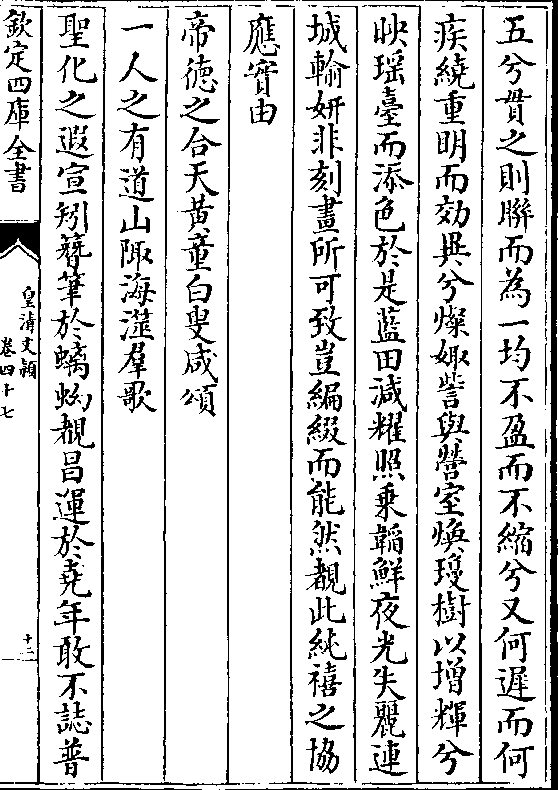 五兮貫之則聯而為一均不盈而不縮兮又何遲而何
疾繞重明而効異兮燦娵訾與營室煥瓊樹以增輝兮
映瑶臺而添色於是藍田減耀照乗韜鮮夜光失麗連
城輸妍非刻畫所可致豈編綴而能然覩此純禧之協
應實由
帝德之合天黄童白叟咸頌
一人之有道山陬海澨羣歌
聖化之遐宣矧簪筆於螭坳覩昌運於堯年敢不誌普
欽定四庫全書
皇清文頴
卷四十七
十二